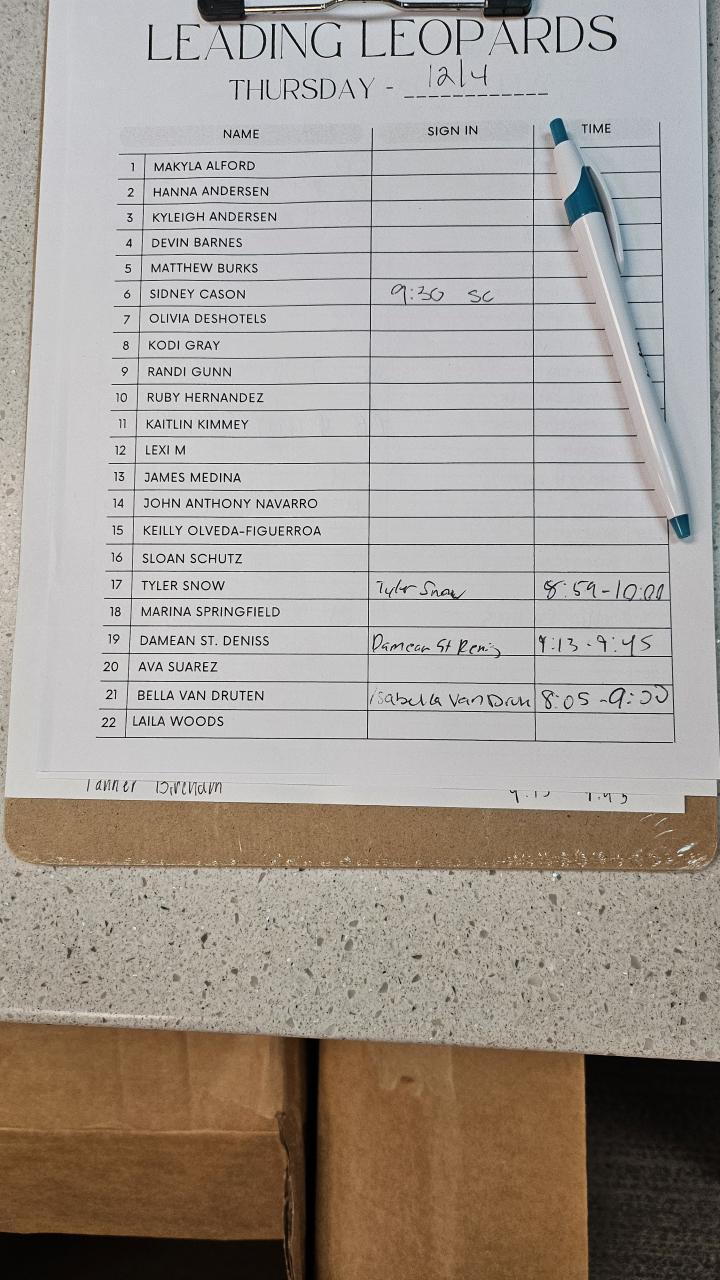 LEADING LEOPARDS
THURSDAY - 12/4
NAME SIGN IN TIME
1 MAKYLA ALFORD
2 HANNA ANDERSEN
3 KYLEIGH ANDERSEN
4 DEVIN BARNES
5 MATTHEW BURKS
6 SIDNEY CASON 9:30 SC
7 OLIVIA DESHOTELS
8 KODI GRAY
9 RANDI GUNN
10 RUBY HERNANDEZ
11 KAITLIN KIMMEY
12 LEXI M
13 JAMES MEDINA
14 JOHN ANTHONY NAVARRO
15 KEILLY OLVEDA-FIGUERROA
16 SLOAN SCHUTZ
17 TYLER SNOW Tyler Snow 8:59-10:00
18 MARINA SPRINGFIELD
19 DAMEAN ST. DENISS Damean St Denis 9:13-9:45
20 AVA SUAREZ
21 BELLA VAN DRUTEN Isabella Van 8:05-9:30
22 LAILA WOODS
Tanner